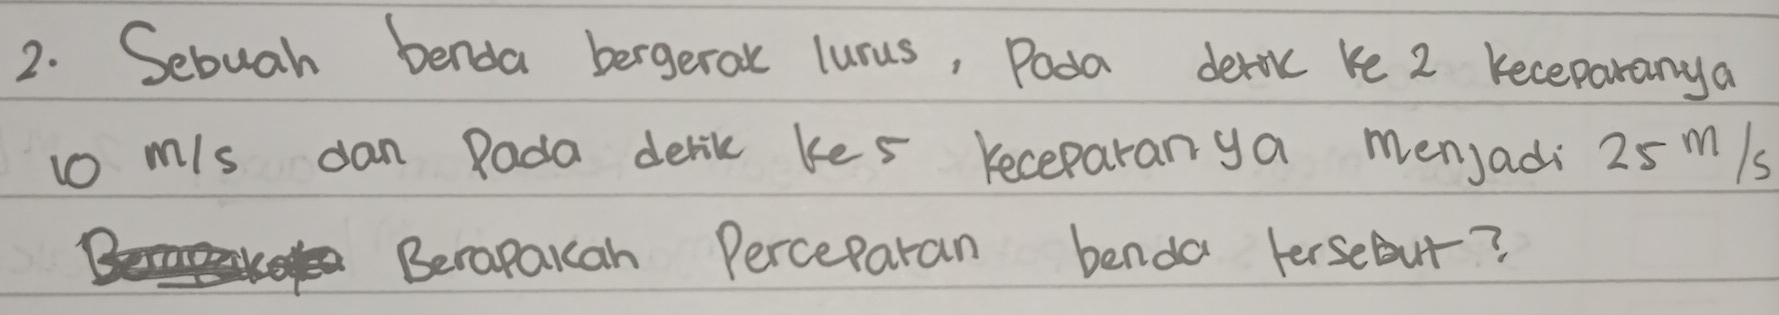 2. Sebuah benda bergerak lurus, Pada detik ke 2 keceparanya
10 m/s dan Pada detik ke 5 keceparanya menjadi 25 m/s
Berapakah Perceparan benda tersebut?